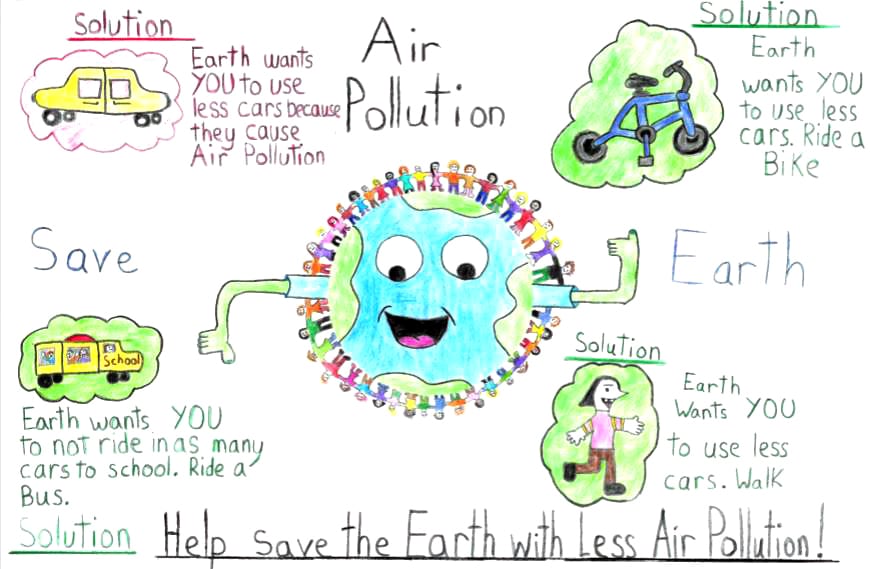 Solution
Earth wants
YOU to use
less cars because
they cause
Air Pollution
Air
Pollution
Solution
Earth
wants YOU
to use less
cars. Ride a
Bike
Save
Earth
School
Earth wants YOU
to not ride in as many
cars to school. Ride a
Bus.
Solution
Solution
Earth
Wants YOU
to use less
cars. Walk
Help save the Earth with Less Air Pollution!